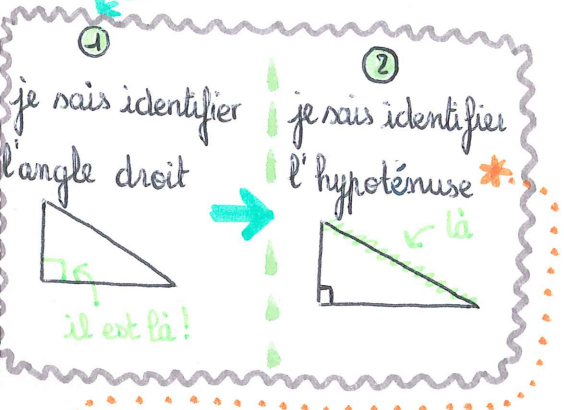 1
je sais identifier
l'angle droit
il est là !
2
je sais identifier
l'hypoténuse *
là